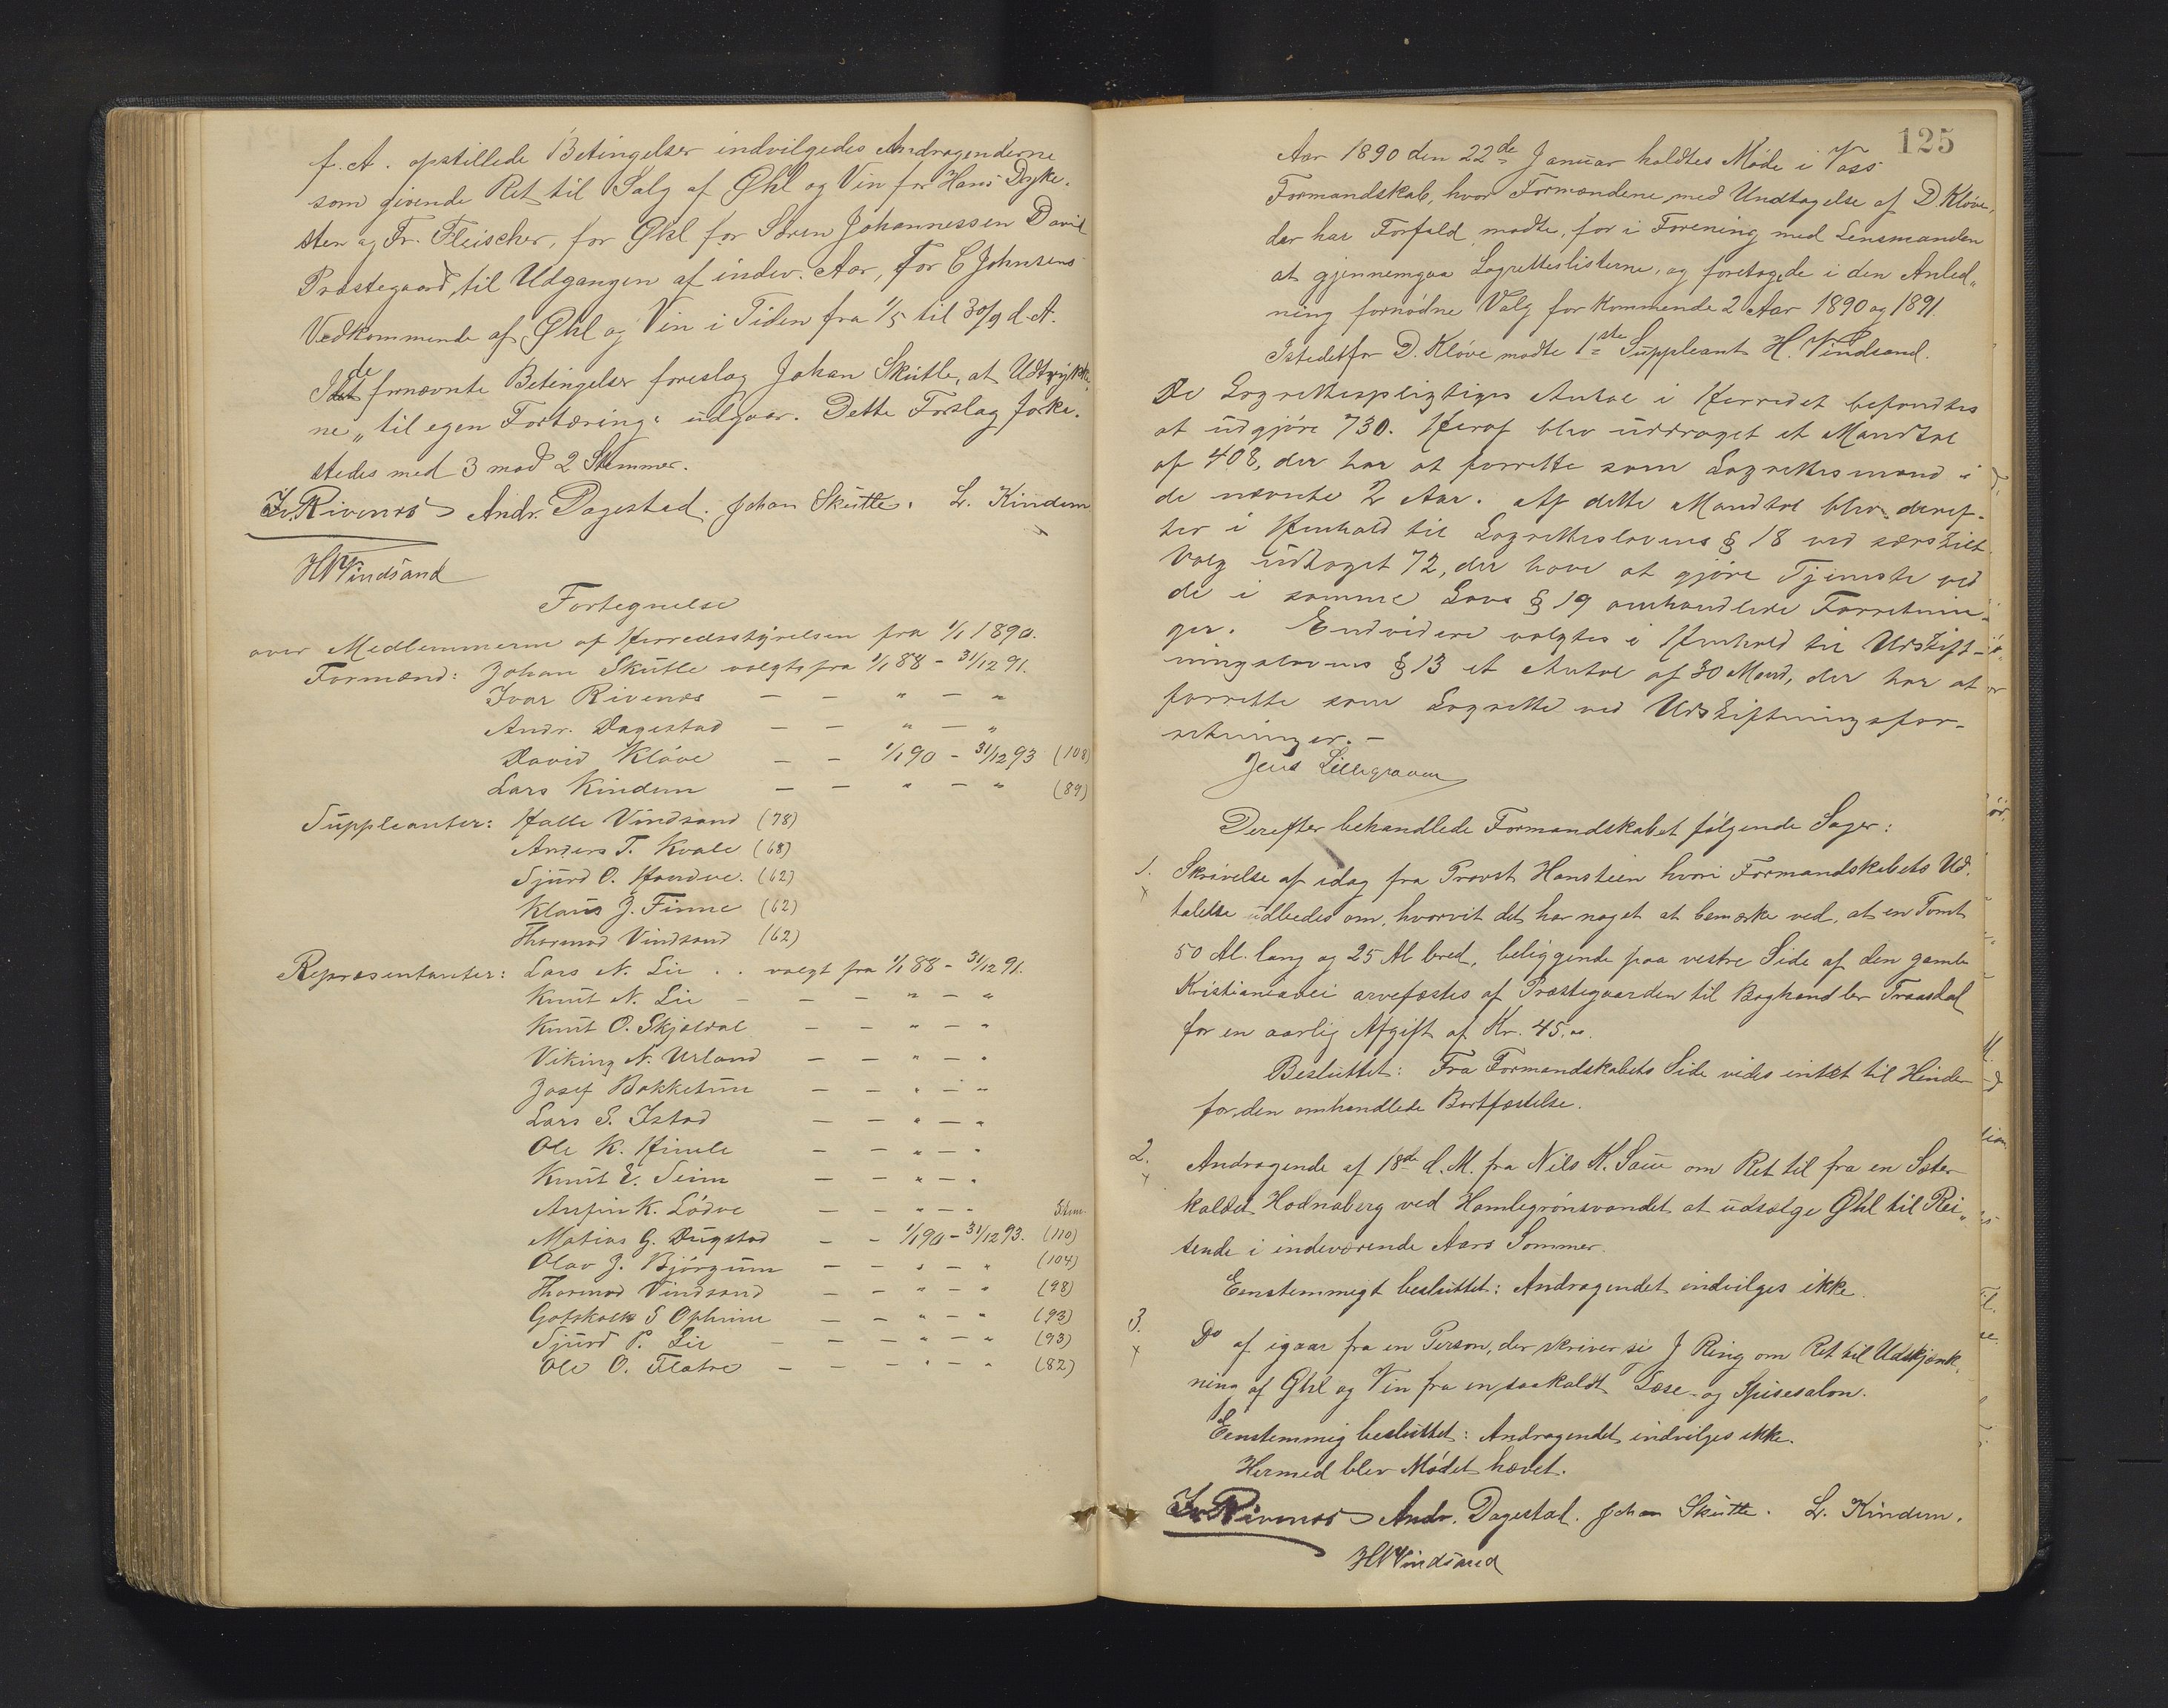 f. A. opstillede Betingelser indvilgedes Andragenderne
som givende Ret til Salg af Øhl og Vin for Hans Dyke-
sten og Fr. Fleischer, for Øhl for Søren Johannessen David
Præstegaard, til Udgangen af indev. Aar, for C Johnsens
Vedkommende af Øhl og Vin i Tiden fra 1/5 til 30/9 d. A.
I de fornævnte Betingelser foreslog Johan Skutle, at Udtrykke-
ne „til egen Fortæring" udgaar. Dette Forslag forka-
stedes med 3 mod 2 Stemmer.
Iv. Rivenæs Andr. Dagestad. Johan Skutle. L. Kindem
HVindsand
Fortegnelse
over Medlemmerne af Herredsstyrelsen fra 1/1 1890.
Formænd: Johan Skutle valgt fra 1/1 88 - 31/12 91.
Ivar Rivenæs — — " — "
Andr. Dagestad — — " — "
David Kløve — — 1/1 90 - 31/12 93 (108)
Lars Kindem — — " — " (89)
Suppleanter: Halle Vindsand (78)
Anders T. Kvale (68)
Sjurd O. Hondve. (62)
Klaus J. Finne (62)
Thormod Vindsand (62)
Repræsentanter: Lars N. Lie . . valgt fra 1/1 88 - 31/12 91.
Knut N. Lie — — — " — "
Knut O. Skjeldal — — " — "
Viking N. Urland — — " — "
Josef Bakketun — — " — "
Lars S. Istad — — " — "
Ole K. Himle — — " — "
Knut E. Seim — — " — "
Anfin K. Lødve — — " — " Stem.
Matias G. Dugstad — — 1/1 90 - 31/12 93. (110)
Olav J. Bjørgum — — " — " (104)
Thormod Vindsand — — " — " (98)
Gotskalk S Opheim — — " — " (93)
Sjurd P. Lie — — — " — " (93)
Ole O. Flatre — — — " — " (82)
125
Aar 1890 den 22de Januar holdtes Møde i Voss
Formandskab, hvor Formændene, med Undtagelse af D. Kløve,
der har Forfald, mødte, for i Forening med Lensmanden
at gjennemgaa Lagretteslisterne, og foretoges de i den Anled„
ning fornødne Valg for kommende 2 Aar 1890 og 1891.
Istedetfor D. Kløve mødte 1ste Suppleant H. Vindsand.
De Lagrettespligtiges Antal i Herredet befandtes
at udgjøre 730. Heraf blev uddraget et Mandtal
af 408, der har at forrette som Lagrettesmænd i
de nævnte 2 Aar. Af dette Mandtal blev deref-
ter i Henhold til Lagretteslovens § 18 ved særskilt
Valg udtaget 72, der have at gjøre Tjeneste ved
de i samme Lovs § 19 omhandlede Forretnin-
ger. Endvidere valgtes i Henhold til Udskift-
ningslovens § 13 et Antal af 30 Mænd, der har at
forrette som Lagrette ved Udskiftningsfor-
retninger. —
Jens Lillegraven
Derefter behandlede Formandskabet følgende Sager:
1. Skrivelse af idag fra Provst Hansteen hvori Formandskabets Ud-
x
talelse udbedes om, hvorvit det har noget at bemærke ved, at en Tomt
50 Al. lang og 25 Al bred, beliggende paa vestre Side af den gamle
Kristianiavei arvefæstes af Præstegaarden til Boghandler Traasdal
for en aarlig Afgift af Kr. 45.00.
Besluttet: Fra Formandskabets Side vides intet til Hinder
for den omhandlede Bortfæstelse.
2. Andragende af 18de d. M. fra Nils K. Saue om Ret til fra en Sæter
x
kaldet Hodnaberg ved Hamlegrønsvandet at udsælge Øhl til Rei„
sende i indeværende Aars Sommer.
Eenstemmigt besluttet: Andragendet indvilges ikke.
3. Do af igaar fra en Person, der skriver si J Ring om Ret til Udskjænk-
x
ning af Øhl og Vin fra en saakaldt Læse- og Spisesalon.
Eenstemmig besluttet: Andragendet indvilges ikke.
Hermed blev Mødet hævet.
Iv. Rivenæs Andr. Dagestad. Johan Skutle. L. Kindem.
HVindsand